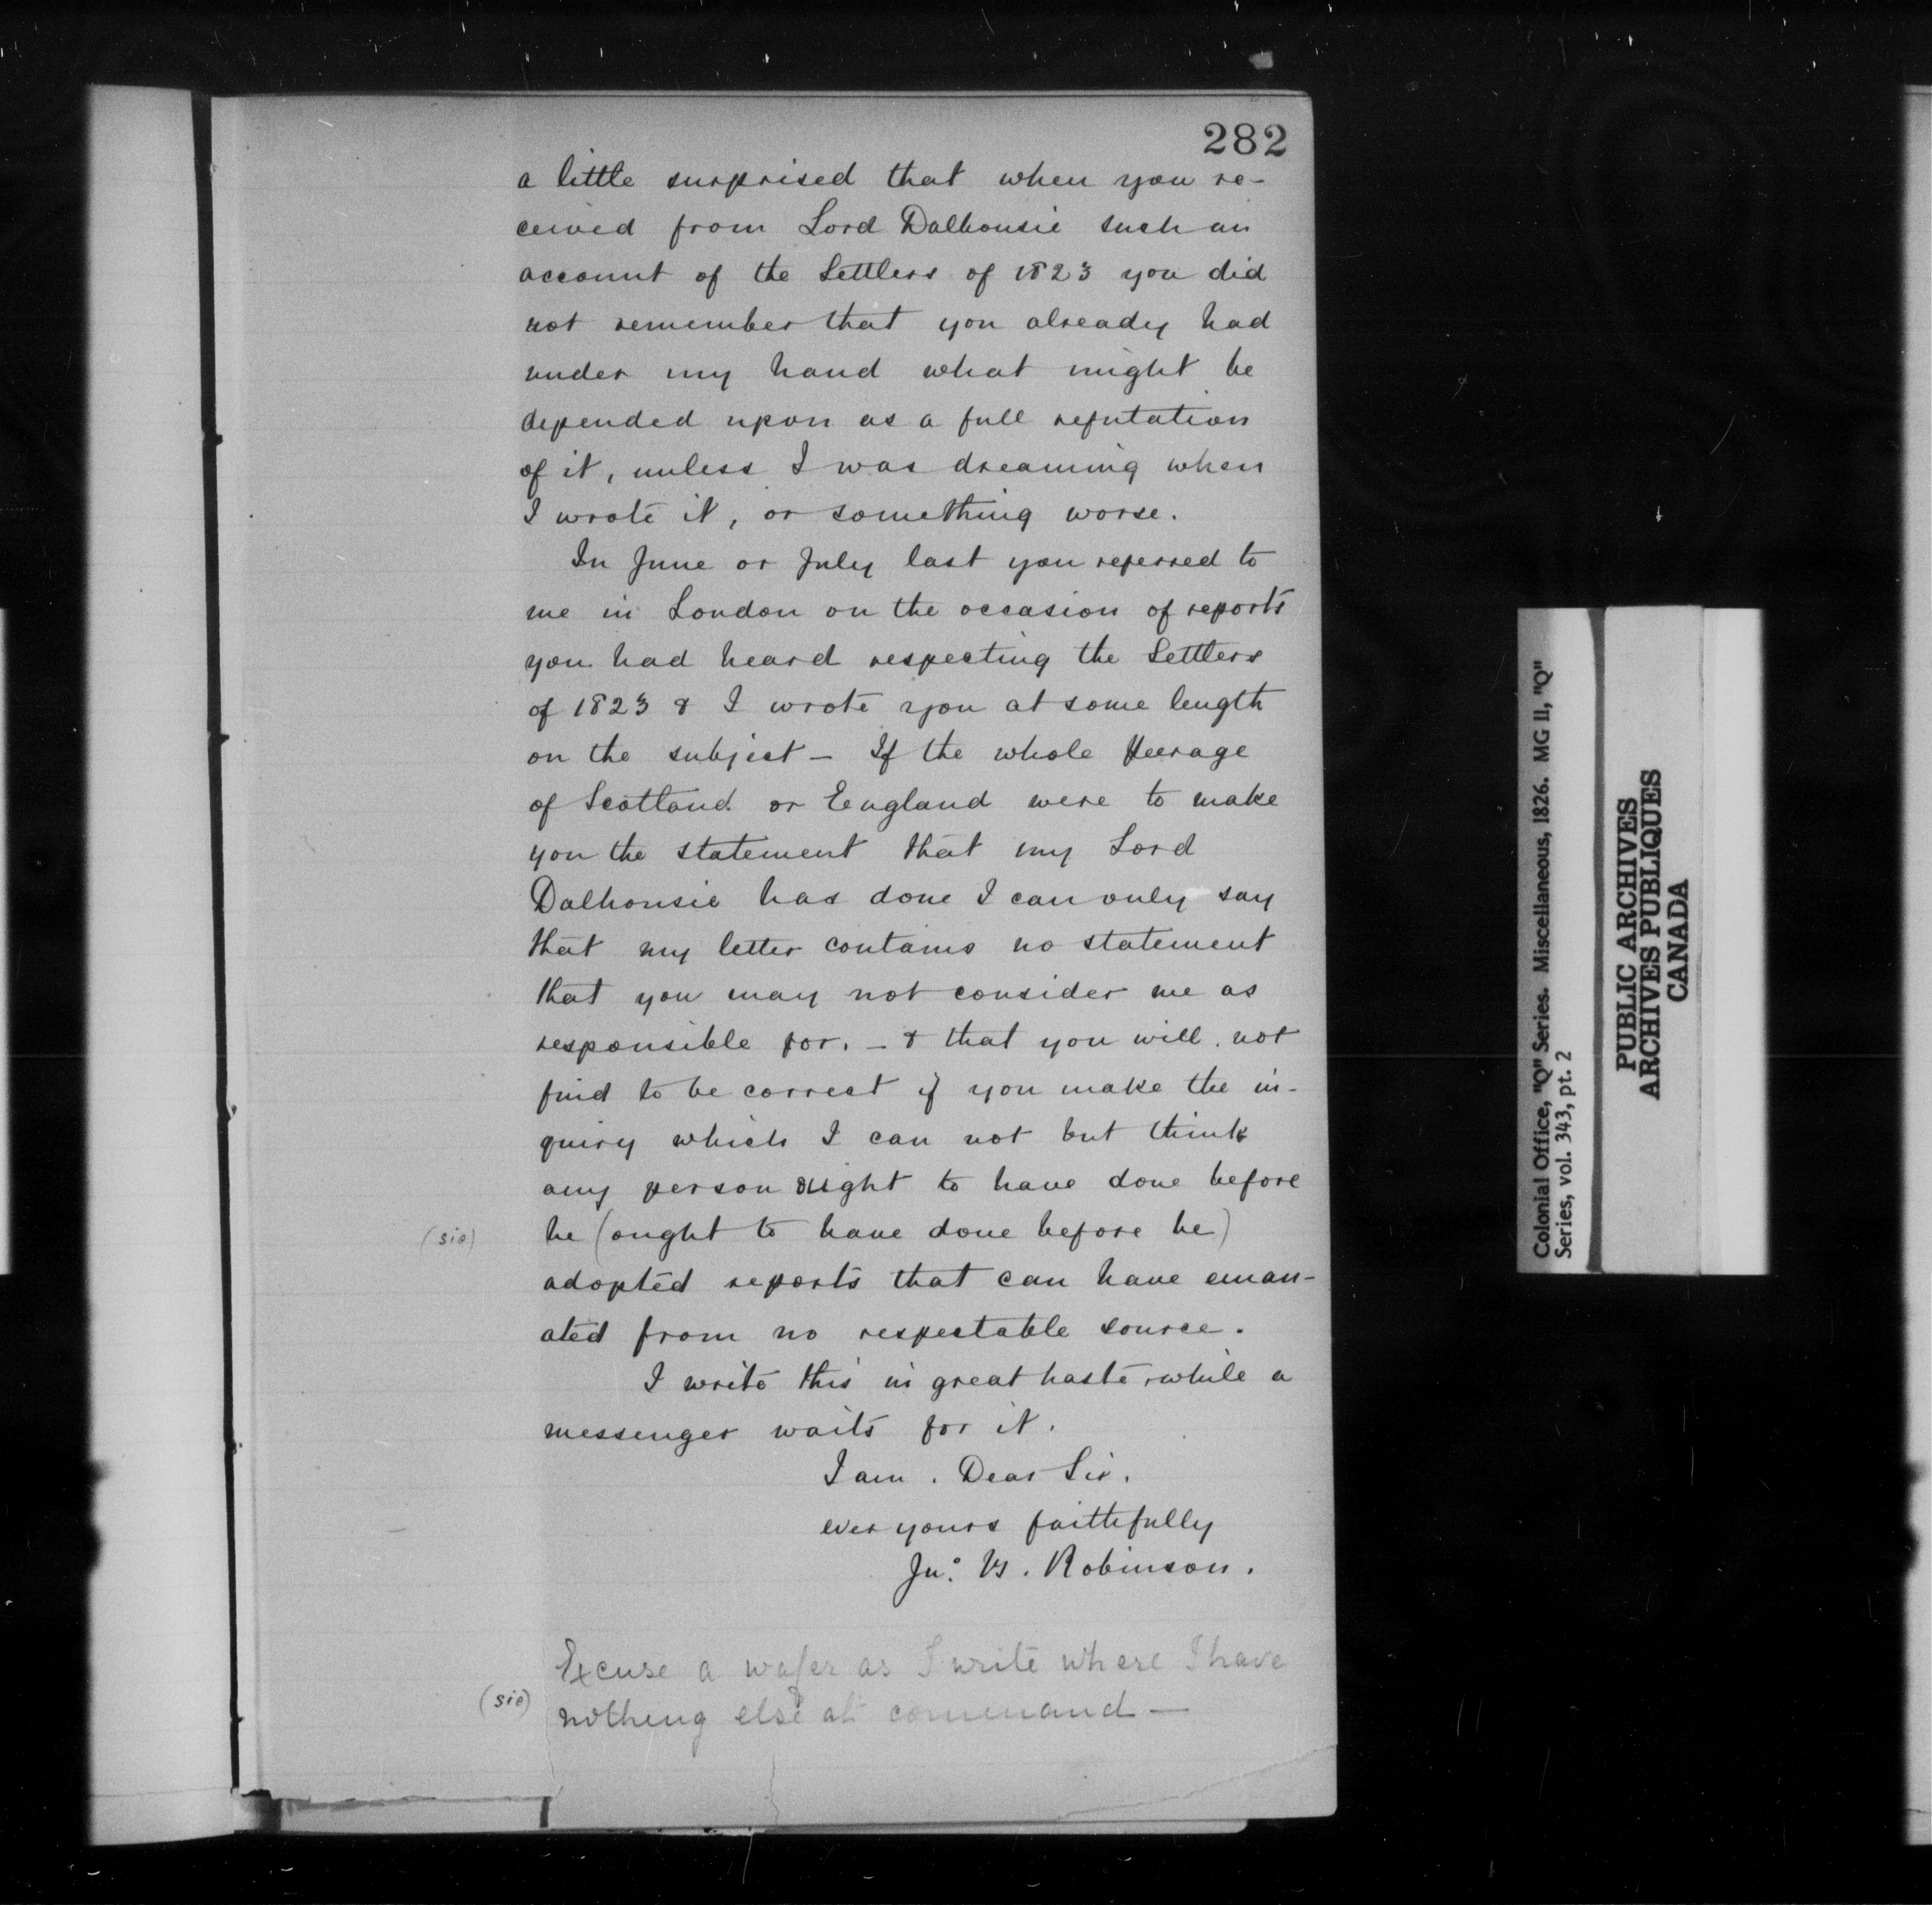 282
a little surprised that when you re-
ceived from Lord Dalhousie such an
account of the Settlers of 1823 you did
not remember that you already had
under my hand what might be
depended upon as a full refutation
of it, unless I was dreaming when
I wrote it, or something worse.
In June or July last you referred to
me in London on the occasion of reports
you had heard respecting the Settlers
of 1823 & I wrote you at some length
on the subject - If the whole Peerage
of Scotland or England were to make
you the statement that my Lord
Dalhousie has done I can only say
that my letter contains no statement
that you may not consider me as
responsible for. - & that you will not
find to be correct if you make the in-
quiry which I can not but think
any person ought to have done before
(sic) he (ought to have done before he)
adopted reports that can have eman-
ated from no respectable source.
I write this in great haste while a
messenger waits for it.
I am. Dear Sir.
ever yours faithfully
Jno. B. Robinson.
Excuse a wafer as I write where I have
(sic) nothing else at command -
Colonial Office, "Q" Series. Miscellaneous, 1826. MG 11, "Q"
Series, vol. 343, pt. 2
PUBLIC ARCHIVES
ARCHIVES PUBLIQUES
CANADA